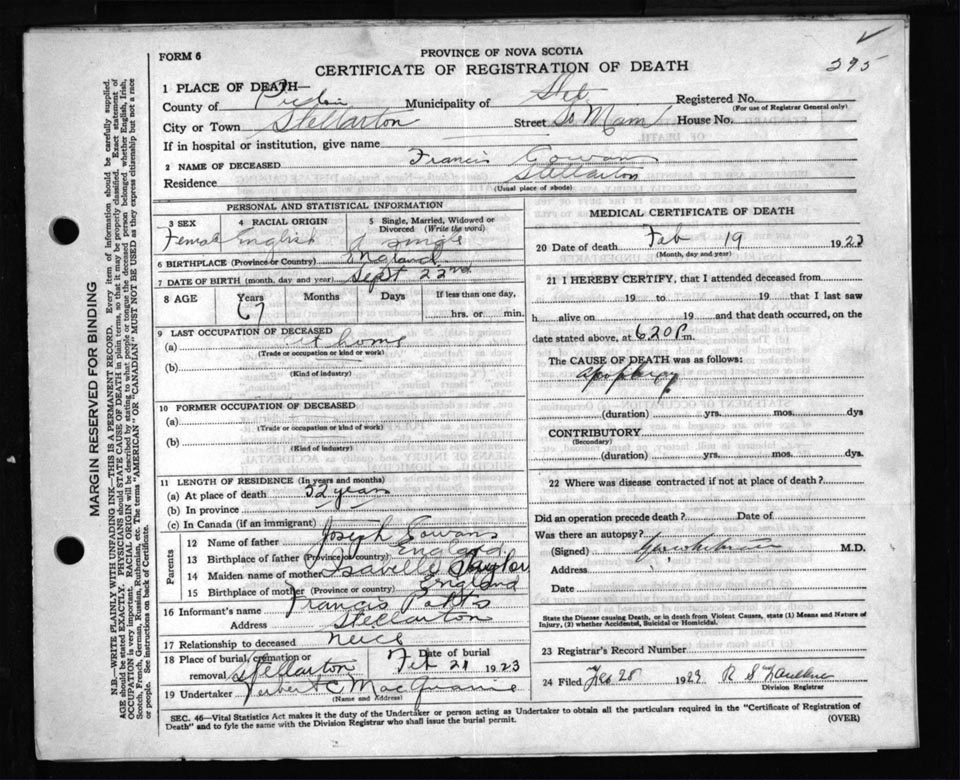 FORM 6
PROVINCE OF NOVA SCOTIA
CERTIFICATE OF REGISTRATION OF DEATH
395
1 PLACE OF DEATH—
County of Pictou Municipality of Registered No.
(For use of Registrar General only)
City or Town Stellarton Street So Main House No.
If in hospital or institution, give name
2 NAME OF DECEASED Francis Gowans
Residence Stellarton
(Usual place of abode)
PERSONAL AND STATISTICAL INFORMATION
3 SEX 4 RACIAL ORIGIN 5 Single, Married, Widowed or Divorced (Write the word)
Female English single
6 BIRTHPLACE (Province or Country) England
7 DATE OF BIRTH (month, day and year) Sept 22nd
8 AGE Years Months Days If less than one day,
67 hrs. or min.
9 LAST OCCUPATION OF DECEASED
(a) at home
(Trade or occupation or kind or work)
(b)
(Kind of industry)
10 FORMER OCCUPATION OF DECEASED
(a)
(Trade or occupation or kind of work)
(b)
(Kind of industry)
11 LENGTH OF RESIDENCE (In years and months)
(a) At place of death 32 years
(b) In province
(c) In Canada (if an immigrant)
Parents
12 Name of father Joseph Gowans
13 Birthplace of father (Province or country) England
14 Maiden name of mother Isabelle Taylor
15 Birthplace of mother (Province or country) England
16 Informant's name Francis Potts
Address Stellarton
17 Relationship to deceased neice
18 Place of burial, cremation or removal Stellarton Date of burial Feb 21 1923
19 Undertaker Herbert C MacQuarrie
(Name and Address)
MEDICAL CERTIFICATE OF DEATH
20 Date of death Feb 19 1923
(Month, day and year)
21 I HEREBY CERTIFY, that I attended deceased from
19 to 19 that I last saw
h alive on 19 and that death occurred, on
date stated above, at 6.20 P m.
The CAUSE OF DEATH was as follows:
Apoplexy
(duration) yrs. mos. dys
CONTRIBUTORY
(Secondary)
(duration) yrs. mos. dys.
22 Where was disease contracted if not at place of death?
Did an operation precede death? Date of
Was there an autopsy?
(Signed) M.D.
Address
Date
State the Disease causing Death, or in death from Violent Causes, state (1) Means and Nature of
Injury, (2) whether Accidental, Suicidal or Homicidal.
23 Registrar's Record Number
24 Filed Feb 28 1923 R S Faulkner
Division Registrar
SEC. 46—Vital Statistics Act makes it the duty of the Undertaker or person acting as Undertaker to obtain all the particulars required in the "Certificate of Registration of
Death" and to fyle the same with the Division Registrar who shall issue the burial permit. (OVER)
MARGIN RESERVED FOR BINDING
N.B.—WRITE PLAINLY WITH UNFADING INK—THIS IS A PERMANENT RECORD. Every item of information should be carefully supplied.
AGE should be stated EXACTLY. PHYSICIANS should STATE CAUSE OF DEATH in plain terms, so that it may be properly classified. Exact statement of
OCCUPATION is very important. RACIAL ORIGIN will be described by stating to what people or tongue the deceased person belonged whether English, Irish,
Scotch, French, German, Russian, Ruthenian, etc. The terms "AMERICAN" OR "CANADIAN" MUST NOT BE USED as they express citizenship but not a race
or people. See instructions on back of Certificate.